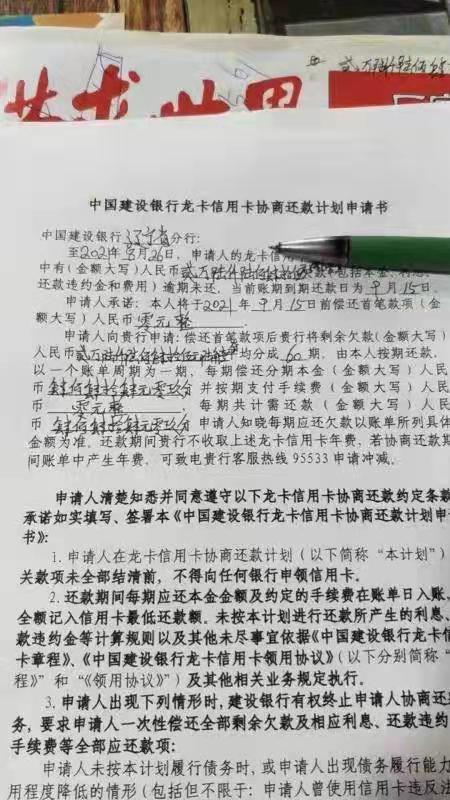 中国建设银行龙卡信用卡协商还款计划申请书
中国建设银行辽宁省分行:
至2021年8月26日，申请人的龙卡信用
中有（金额大写）人民币 包括本金、利息、
还款违约金和费用）逾期未还，当前账期到期还款日为9月15日。
申请人承诺：本人将于2021年9月15日前偿还首笔款项（金
额大写）人民币零元整。
申请人向贵行申请：偿还首笔款项后贵行将剩余欠款（金额大写）
人民币 均分成60期，由本人按期还款，
以一个账单周期为一期，每期偿还分期本金（金额大写）人民
币 并按期支付手续费（金额大写）人民
币零元整，每期共计需还款（金额大写）人民
币 申请人知晓每期应还欠款以账单所列具体
金额为准。还款期间贵行不收取上述龙卡信用卡年费，若协商还款期
间账单中产生年费，可致电贵行客服热线95533申请冲减。
申请人清楚知悉并同意遵守以下龙卡信用卡协商还款约定条款
承诺如实填写、签署本《中国建设银行龙卡信用卡协商还款计划申请
书》:
1.申请人在龙卡信用卡协商还款计划（以下简称“本计划”）
关款项未全部结清前，不得向任何银行申领信用卡。
2.还款期间每期应还本金金额及约定的手续费在账单日入账，
全额记入信用卡最低还款额。未按本计划进行还款所产生的利息、
款违约金等计算规则以及其他未尽事宜依据《中国建设银行龙卡信
卡章程》、《中国建设银行龙卡信用卡领用协议》（以下分别简称“
程》”和“《领用协议》”）及其他相关业务规定执行。
3.申请人出现下列情形时，建设银行有权终止申请人协商还
务，要求申请人一次性偿还全部剩余欠款及相应利息、还款违约
手续费等全部应还款项:
申请人未按本计划履行债务时，或申请人出现债务履行能力
用程度降低的情形（包括但不限于：申请人曾使用信用卡违反法